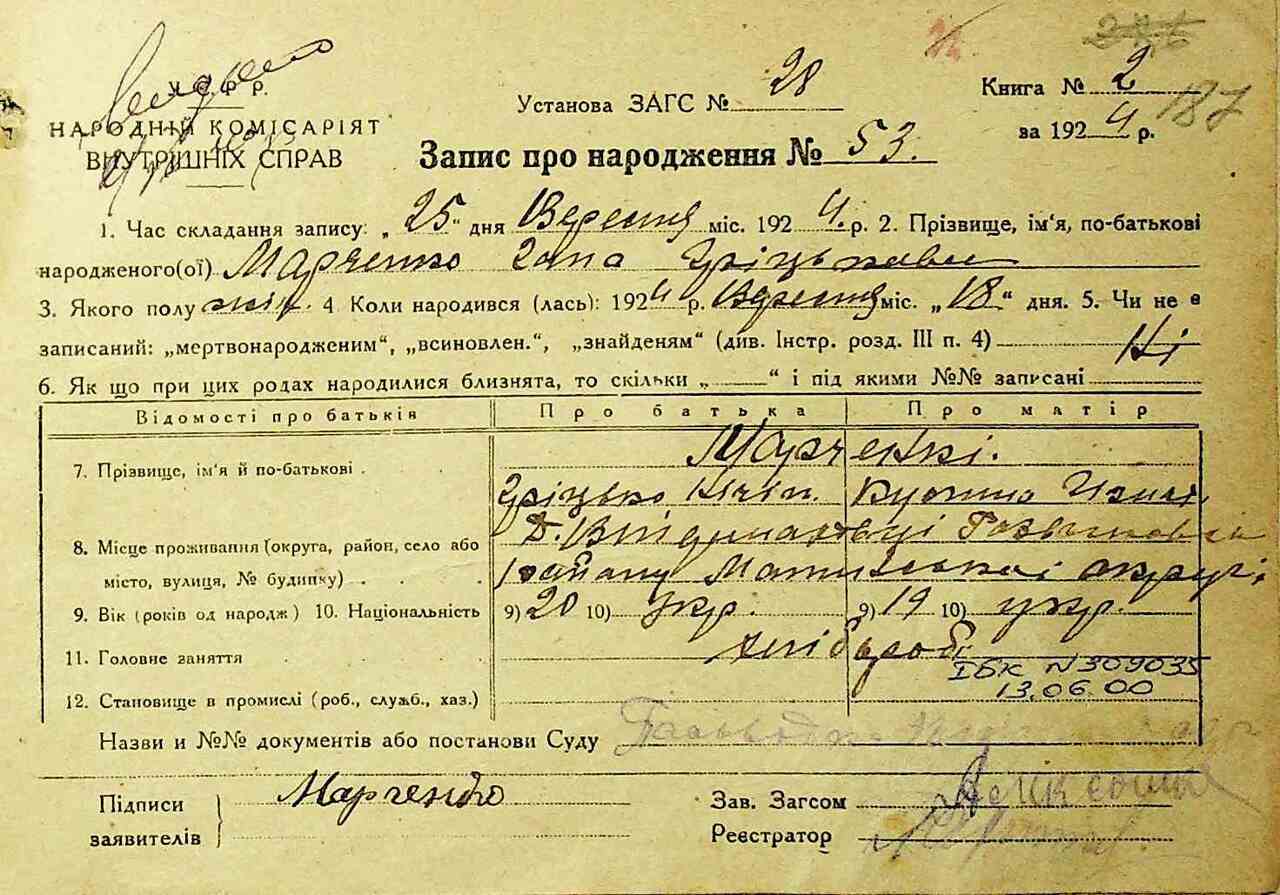 У. С. Р. Р.
НАРОДНІЙ КОМІСАРІЯТ
ВНУТРІШНІХ СПРАВ
Установа ЗАГС № 28
Книга № 2
за 1924 р.
187
Запис про народження № 53.
1. Час складання запису: „25“ дня Вересня міс. 1924 р. 2. Прізвище, ім'я, по-батькові
народженого(ої) Марченко Гапа Гріцьковна
3. Якого полу жін. 4. Коли народився (лась): 1924 р. Вересня міс. „18“ дня. 5. Чи не є
записаний: „мертвонародженим“, „всиновлен.“, „знайденям“ (див. Інстр. розд. III п. 4) Ні
6. Як що при цих родах народилися близнята, то скільки „ “ і під якими №№ записані
Відомості про батьків Про батька Про матір
7. Прізвище, ім'я й по-батькові . Марченкі.
Гріцько Нічіп.
8. Місце проживання (округа, район, село або
місто, вулиця, № будинку) . . району округи
9. Вік (років од народж) 10. Національність 9) 20 10) укр. 9) 19 10) укр.
11. Головне заняття . . . . хліборобі
ІБК N309035
13.06.00
12. Становище в промислі (роб., служб., хаз.)
Назви и №№ документів або постанови Суду
Підписи
заявителів
Марченко
Зав. Загсом
Реєстратор